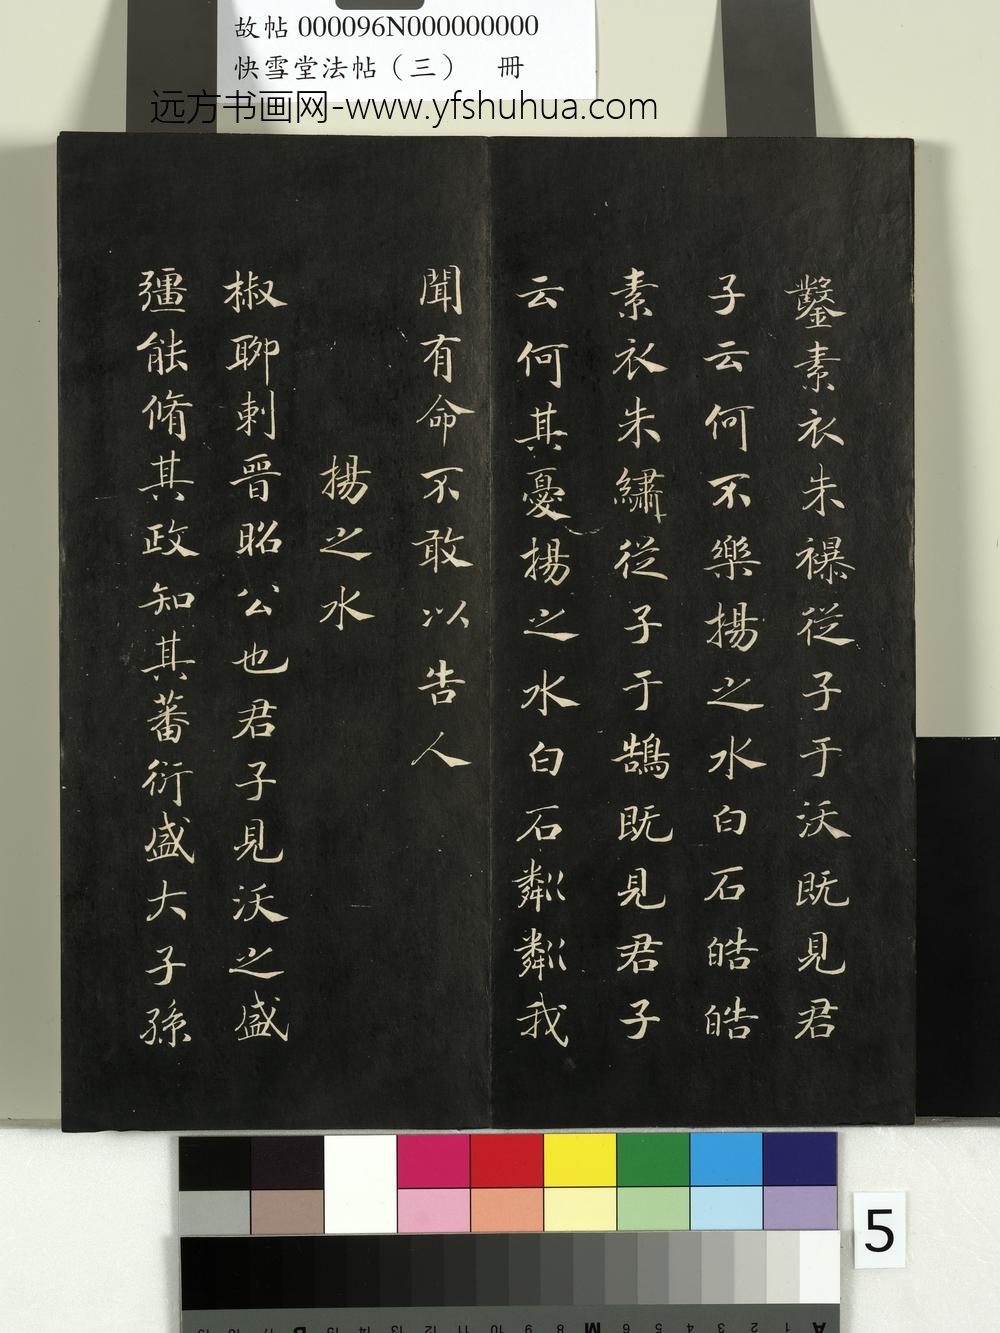 故帖 000096N000000000
快雪堂法帖（三） 冊
远方书画网-www.yfshuhua.com
鑿素衣朱襮從子于沃既見君
子云何不樂揚之水白石皓皓
素衣朱繡從子于鵠既見君子
云何其憂揚之水白石粼粼我
聞有命不敢以告人
揚之水
椒聊刺晉昭公也君子見沃之盛
彊能脩其政知其蕃衍盛大子孫
5
A 1 2 3 4 5 6 M 8 9 10 11 12 13 14 15 B 17 18 19